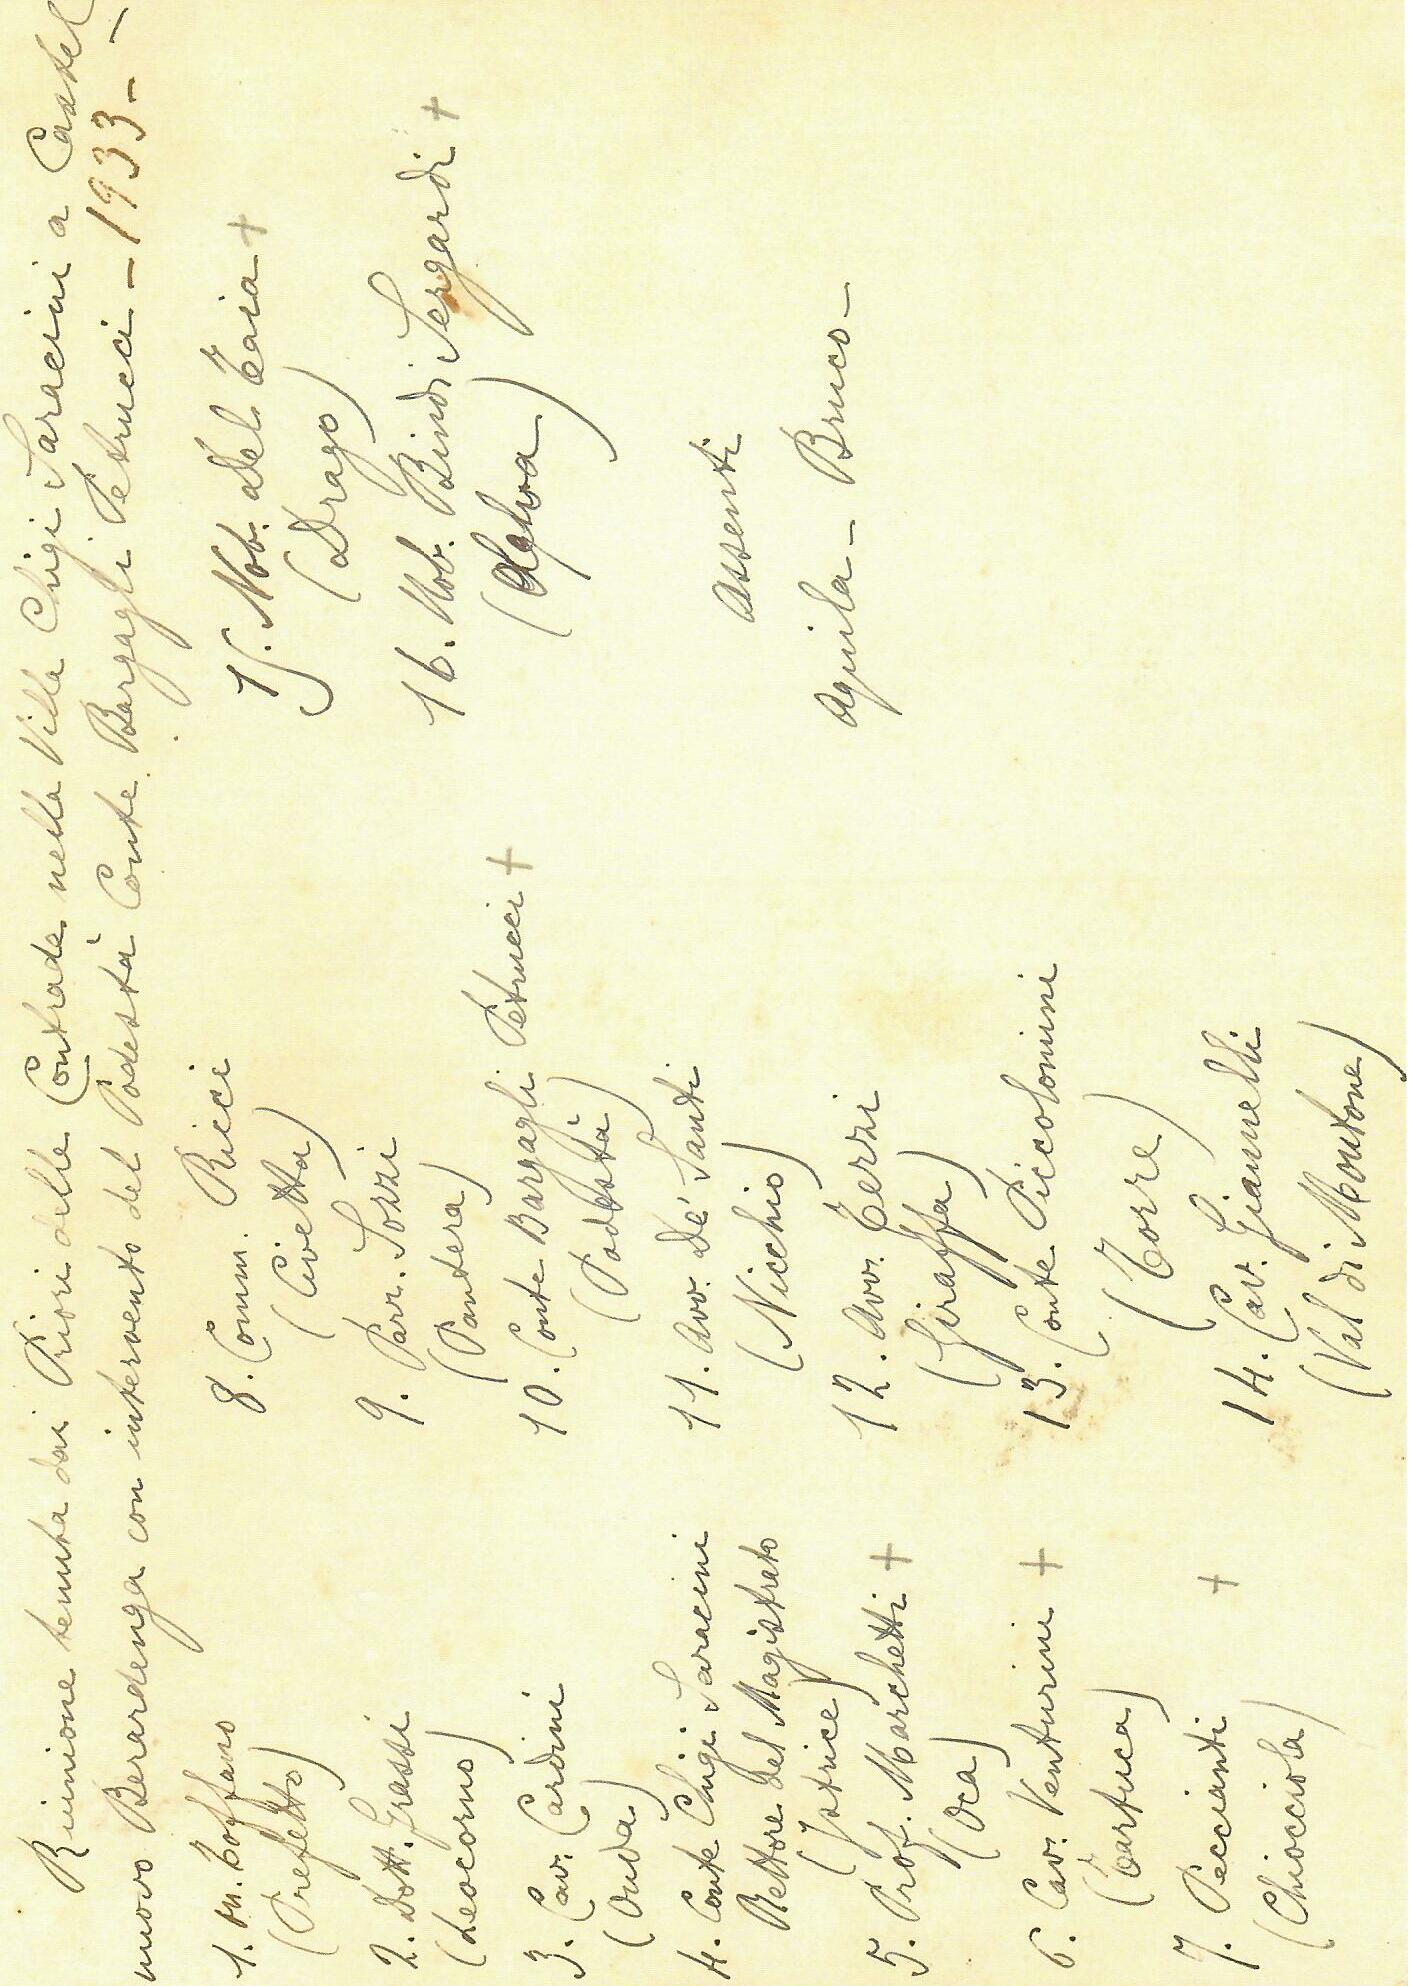 Riunione tenuta dai Priori delle Contrade nella Villa Chigi Saracini a Castel
nuovo Berardenga con intervento del Podestà Conte Bargagli Petrucci - 1933 -
1. On. Toffano
(Prefetto)
2. Dott. Grassi
(Leocorno)
3. Cav. Cardini
(Onda)
4. Conte Chigi Saracini
Rettore del Magistrato
(Istrice)
5. Prof. Marchetti +
(Oca)
6. Cav. Venturini +
(Tartuca)
7. Peccianti +
(Chiocciola)
8. Comm. Ricci
(Civetta)
9. Parr. Sozzi
(Pantera)
10. Conte Bargagli Petrucci +
(Podestà)
11. Avv. De' Santi
(Nicchio)
12. Avv. Terzi
(Giraffa)
13. Conte Piccolomini
(Torre)
14. Cav. Giannelli
(Val di Montone)
15. Nob. Del Taia +
(Drago)
16. Nob. Bindi Sergardi +
Assenti
Aquila - Bruco -